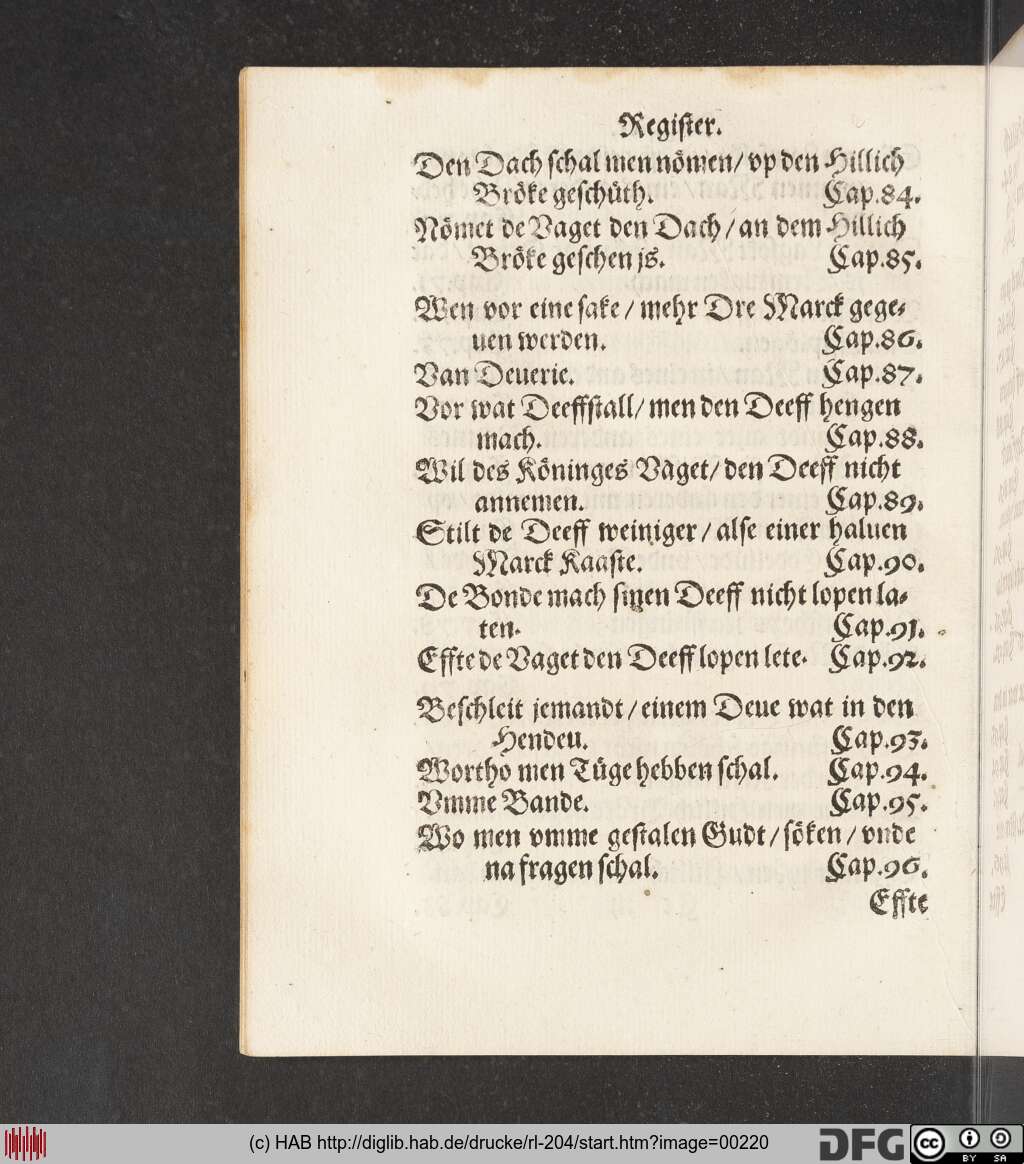 Register.
Den Dach schal men nömen/ vp den Hillich
Bröke geschüth. Cap.84.
Nömet de Vaget den Dach/ an dem Hillich
Bröke geschen js. Cap.85.
Wen vor eine sake/ mehr Dre Marck gege-
uen werden. Cap.86.
Van Deuerie. Cap.87.
Vor wat Deeffstall/ men den Deeff hengen
mach. Cap.88.
Wil des Köninges Vaget/ den Deeff nicht
annemen. Cap.89.
Stilt de Deeff weiniger/ alse einer haluen
Marck Kaaste. Cap.90.
De Bonde mach sinen Deeff nicht lopen la-
ten. Cap.91.
Effte de Vaget den Deeff lopen lete. Cap.92.
Beschleit jemandt/ einem Deue wat in den
Hendeu. Cap.93.
Wortho men Tüge hebben schal. Cap.94.
Vmme Bande. Cap.95.
Wo men vmme gestalen Gudt/ söken/ vnde
na fragen schal. Cap.96.
Effte
(c) HAB http://diglib.hab.de/drucke/rl-204/start.htm?image=00220
DFG
cc
BY SA